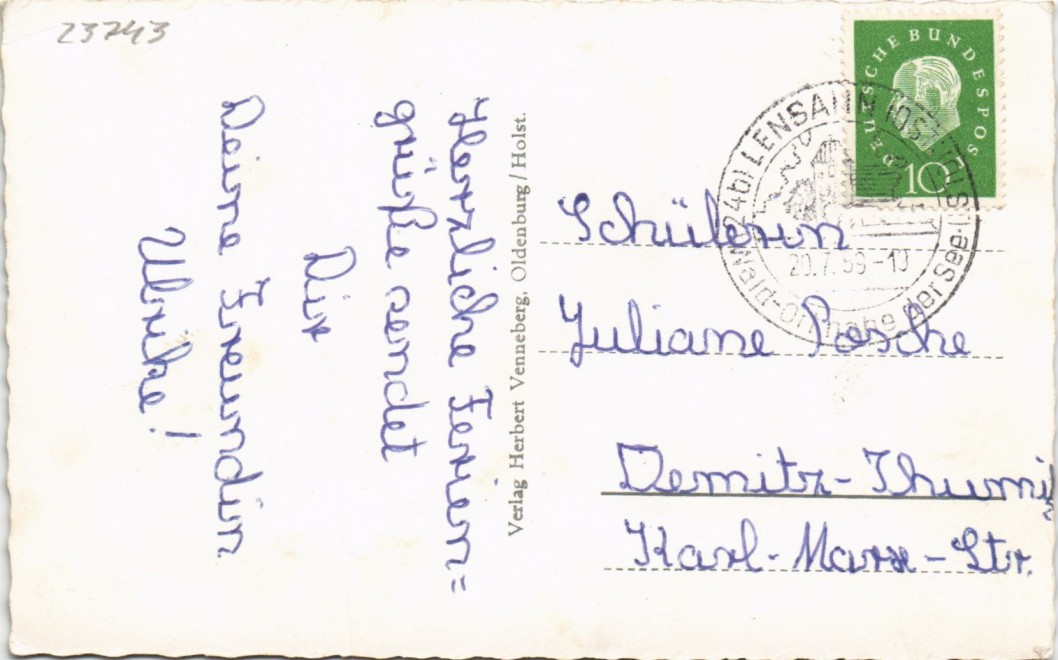 23743
Herzliche Ferien=
grüße sendet
Dir
Deine Freundin
Ulrike!
Verlag Herbert Venneberg, Oldenburg/Holst.
DEUTSCHE BUNDESPOST
10
(24b) LENSAHN (OSTHOLST)
20.7.59-10
der See
Schülerin
Juliane Posche
Demitz-Thumi
Karl-Marx-Str.